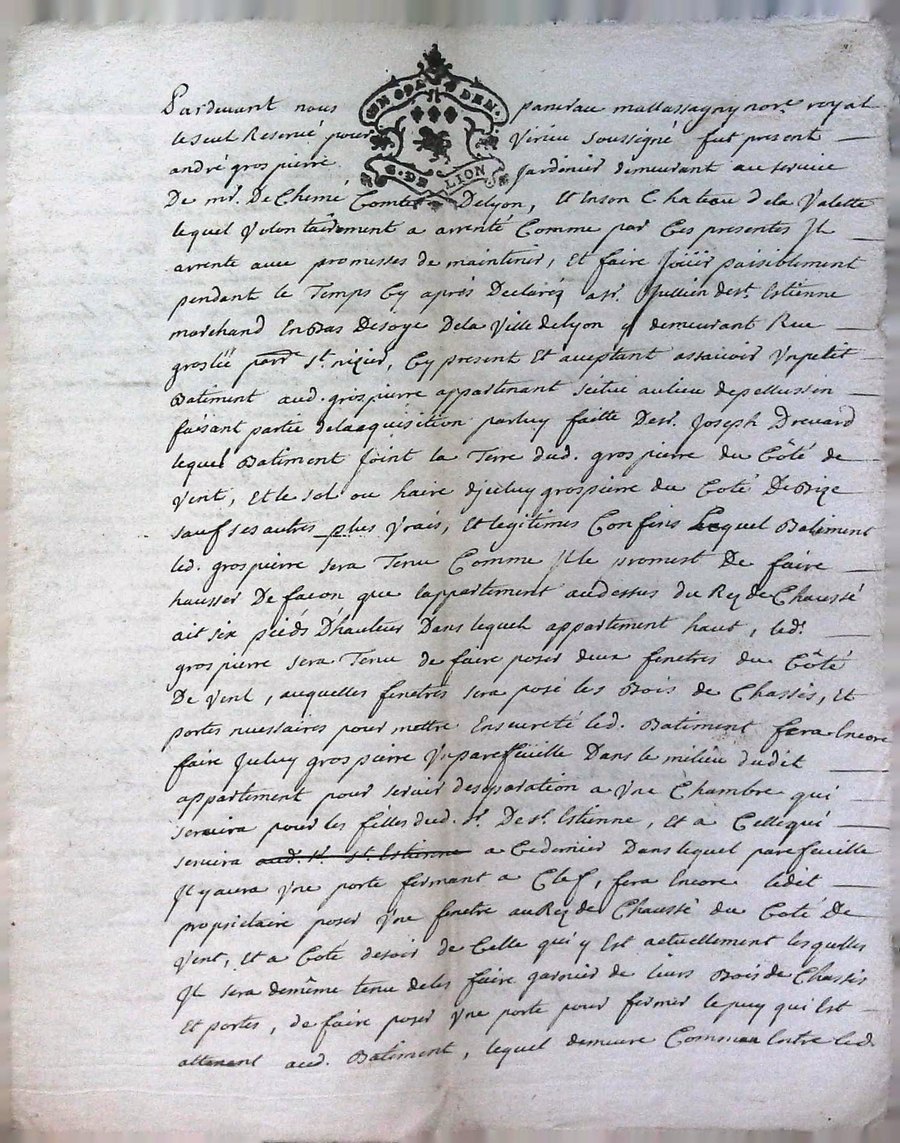 Pardevant nous pancrau mallassagny nore royal
le seul Reservé pour Virieu soussigné fut present
andré grospierre Jardinier demeurant au service
De mr. De Chemé Comte Delyon, et Enson Chateau dela Valette
lequel volontairement a arrenté Comme par Ces presentes Jl
arrente avec promesses de maintenir, et faire Joüir paisiblement
pendant le Temps Cy après Declarés a sr. Jullien de st. Estienne
marchand En Bas De soye De la Ville de lyon y demeurant Rue
groslée parr. st. nizier, Cy present et aceptant assavoir Vn petit
Batiment aud. grospierre appartenant scitué au lieu de pellussin
faisant partie dela aquisition par luy faitte De sr. Joseph Drevard
lequel Batiment Joint la Terre dud. grospierre du Côté de
Vent, et le sol ou haire dJceluy grospierre du Coté De Bize
sauf ses autres plus vrais, et legitimes Confins Lequel Batiment
led. grospierre sera Tenu Comme Jl le promest De faire
hausser De facon que lappartement au dessus du Rez de Chaussé
ait six pieds D'hauteur Dans lequel appartement haut, led.
grospierre sera Tenu de faire poser deux fenetres du Côté
De vent, auquelles fenetres sera posé les Bois de Chassis, et
portes necessaires pour mettre En sureté led. Batiment fera Encore
faire Jceluy grospierre Vn parefeuille Dans le milieu dudit
appartement pour servir deseparation a Vne Chambre qui
servira pour les filles dud. sr. De st. Estienne, et a Celle qui
servira aud. sr. st. Estienne a Cedernier Dans lequel parefeuille
Jl y aura Vne porte fermant a Clef, fera Encore ledit
propriétaire poser Vne fenetre au Rez de Chaussé du Coté De
Vent, et a Coté desoir de Celle qui y Est actuellement lesquelles
Jl sera demême tenu deles faire garnir de leurs Bois de Chassis
Et portes, de faire poser Vne porte pour fermer le puy qui Est
attenant aud. Batiment, lequel demeure Commun Entre led.
GEN. DE LION